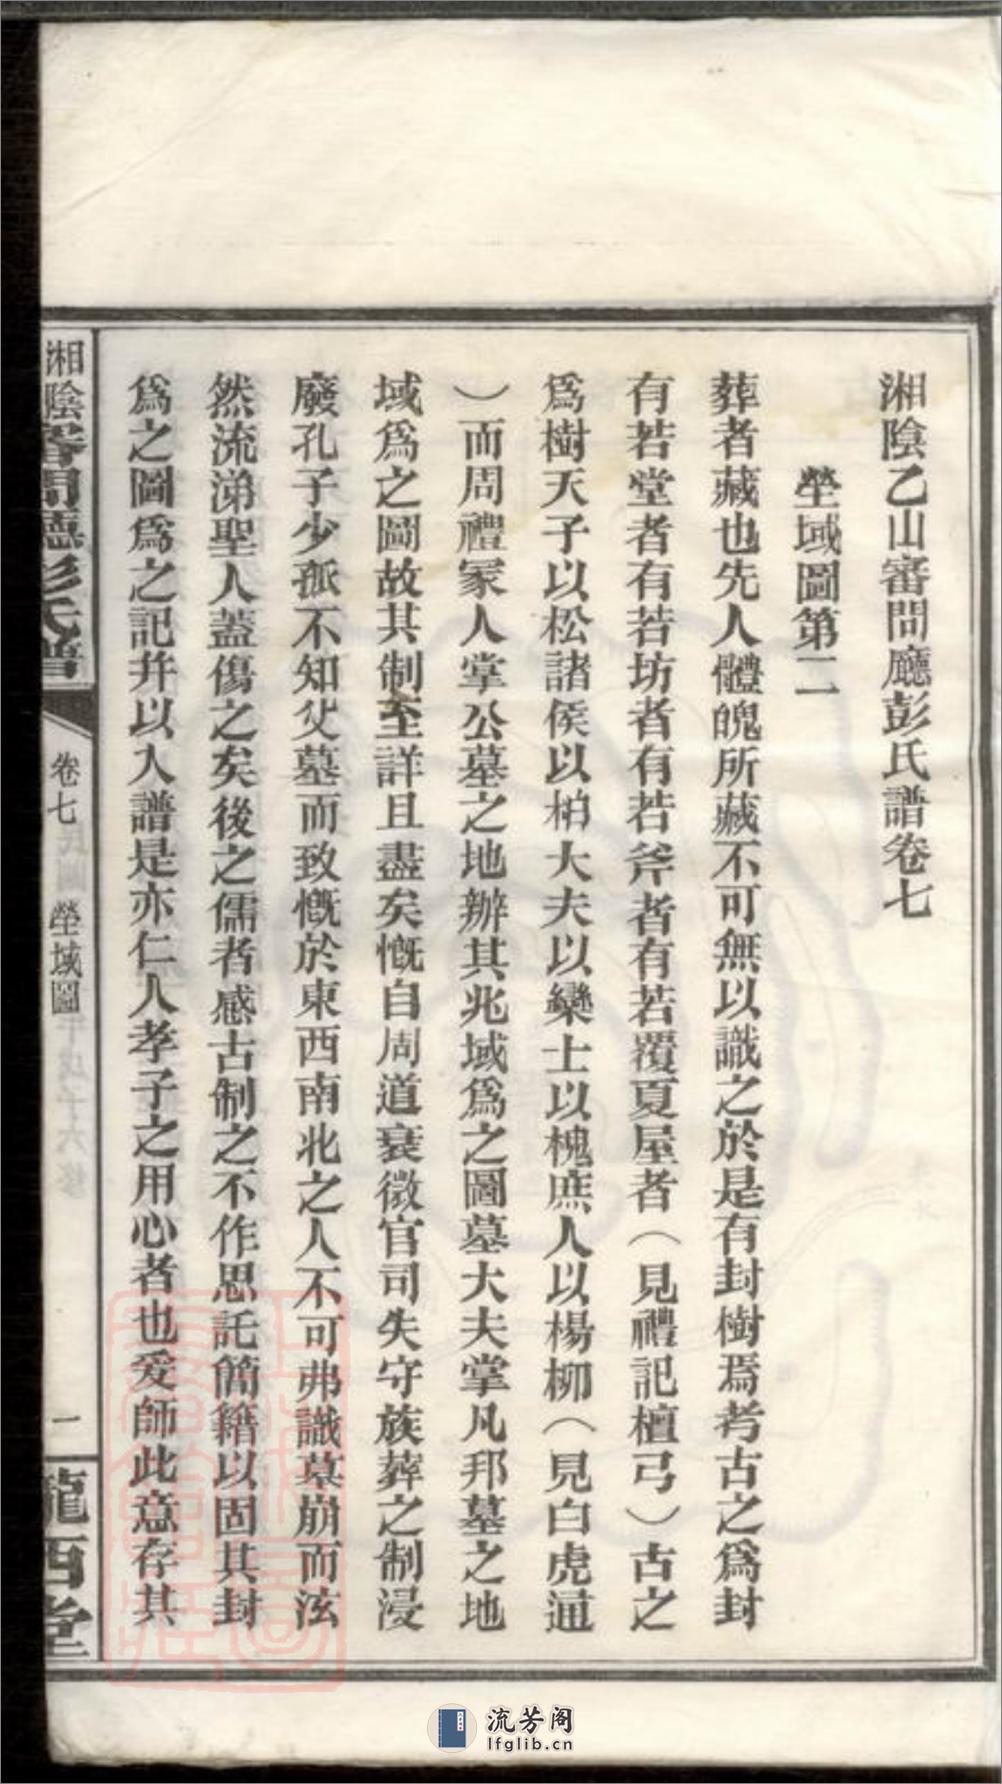 湘陰乙山審問廳彭氏譜卷七
塋域圖第二
葬者藏也先人體魄所藏不可無以識之於是有封樹焉考古之爲封
有若堂者有若坊者有若斧者有若覆夏屋者（見禮記檀弓）古之
爲樹天子以松諸侯以柏大夫以欒士以槐庶人以楊柳（見白虎通
）而周禮冢人掌公墓之地辦其兆域爲之圖墓大夫掌凡邦墓之地
域爲之圖故其制至詳且盡矣慨自周道衰微官司失守族葬之制浸
廢孔子少孤不知父墓而致慨於東西南北之人不可弗識墓崩而泫
然流涕聖人蓋傷之矣後之儒者感古制之不作思託簡籍以固其封
爲之圖爲之記幷以入譜是亦仁人孝子之用心者也爰師此意存其
湘陰
彭氏譜
卷七
塋域圖
一
西堂
流芳阁
lfglib.cn